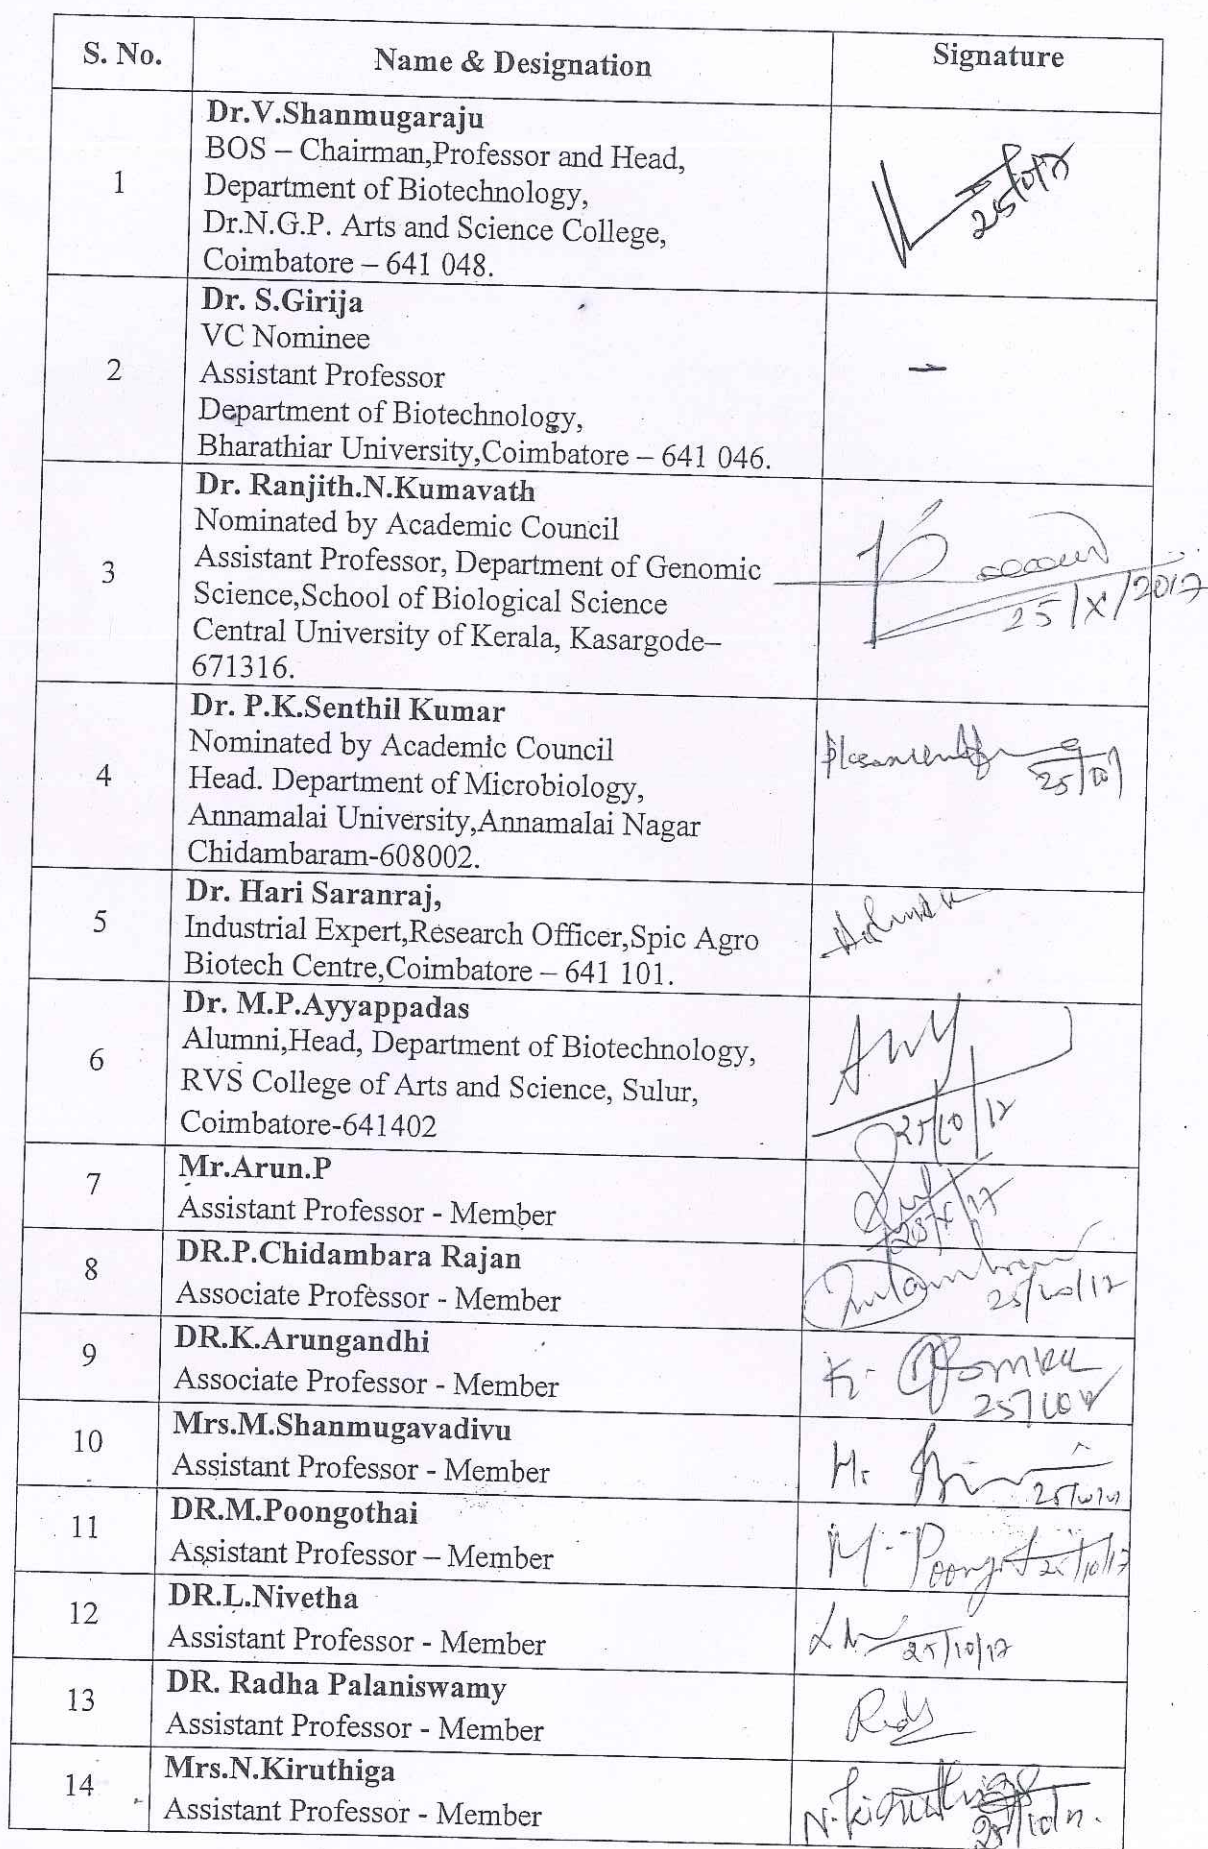 S. No. Name & Designation Signature
1
Dr.V.Shanmugaraju
BOS – Chairman,Professor and Head,
Department of Biotechnology,
Dr.N.G.P. Arts and Science College,
Coimbatore – 641 048.
25/10/17
2
Dr. S.Girija
VC Nominee
Assistant Professor
Department of Biotechnology,
Bharathiar University,Coimbatore – 641 046.
–
3
Dr. Ranjith.N.Kumavath
Nominated by Academic Council
Assistant Professor, Department of Genomic
Science,School of Biological Science
Central University of Kerala, Kasargode–
671316.
25/X/2017
4
Dr. P.K.Senthil Kumar
Nominated by Academic Council
Head. Department of Microbiology,
Annamalai University,Annamalai Nagar
Chidambaram-608002.
25/10/
5
Dr. Hari Saranraj,
Industrial Expert,Research Officer,Spic Agro
Biotech Centre,Coimbatore – 641 101.
6
Dr. M.P.Ayyappadas
Alumni,Head, Department of Biotechnology,
RVS College of Arts and Science, Sulur,
Coimbatore-641402
25/10/17
7
Mr.Arun.P
Assistant Professor - Member
8
DR.P.Chidambara Rajan
Associate Professor - Member
25/10/17
9
DR.K.Arungandhi
Associate Professor - Member
K.
10
Mrs.M.Shanmugavadivu
Assistant Professor - Member
M.
25/10/17
11
DR.M.Poongothai
Assistant Professor – Member
M. Poong 25/10/17
12
DR.L.Nivetha
Assistant Professor - Member
25/10/17
13
DR. Radha Palaniswamy
Assistant Professor - Member
14
Mrs.N.Kiruthiga
Assistant Professor - Member
N. Kiruthiga
25/10/17.